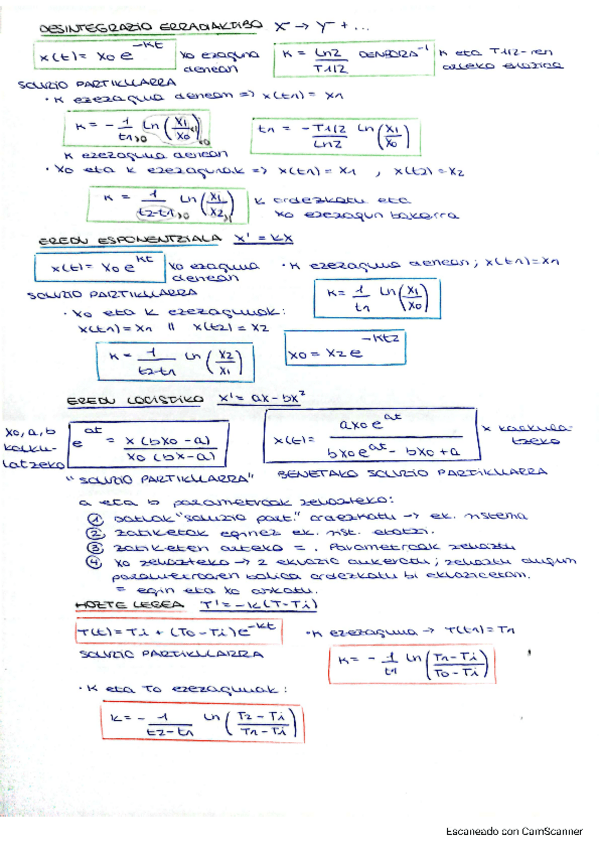 DESINTEGRAZIO ERRADIAKTIBO X → Y + ...
x(t) = x0 e^-kt x0 ezaguna denean K = Ln2 / T1/2 DENBORA^-1 K eta T1/2-ren arteko erlazioa
SOLUZIO PARTIKULARRA
· K ezezaguna denean => x(t1) = x1
K = - 1/t1 Ln (x1/x0) t1 = - T1/2 / Ln2 Ln (x1/x0)
K ezezaguna denean
· X0 eta K ezezagunak => x(t1) = x1 , x(t2) = x2
K = 1/(t2-t1) Ln (x1/x2) K ordezkatu eta
x0 ezezagun bakarra
EREDU ESPONENTZIALA X' = KX
x(t) = x0 e^kt x0 ezaguna denean · K ezezaguna denean; x(t1) = x1
SOLUZIO PARTIKULARRA K = 1/t1 Ln (x1/x0)
· X0 eta K ezezagunak:
x(t1) = x1 // x(t2) = x2
K = 1/(t2-t1) Ln (x2/x1) x0 = x2 e^-kt2
EREDU LOGISTIKO X' = ax - bx²
x0, a, b kalkulatzeko e^at = x (bx0 - a) / x0 (bx - a) x(t) = a x0 e^at / (b x0 e^at - bx0 + a) x kalkulatzeko
"SOLUZIO PARTIKULARRA" BENETAKO SOLUZIO PARTIKULARRA
a eta b parametroak zehazteko:
① Datuak "soluzio part." ordezkatu → ek. sistema
② zatiketak eginez ek. sist. ebatzi.
③ zatiketen arteko = . Parametroak zehaztu
④ X0 zehazteko → 2 ekuazio aukeratu; zehaztu dugun
parametroaren balioa ordezkatu bi ekuazioetan.
= egin eta x0 askatu.
HOZTE LEGEA T' = -k(T-Ti)
T(t) = Ti + (T0 - Ti) e^-kt · K ezezaguna → T(t1) = T1
SOLUZIO PARTIKULARRA K = - 1/t1 Ln (T1 - Ti / T0 - Ti)
· K eta T0 ezezagunak:
K = - 1/(t2-t1) Ln (T2 - Ti / T1 - Ti)
Escaneado con CamScanner